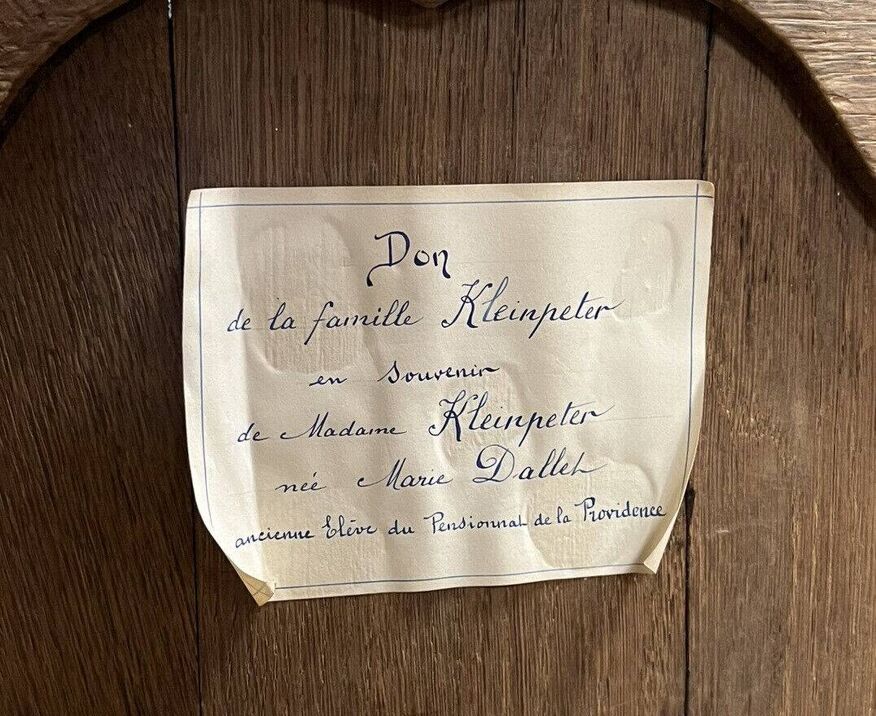 Don
de la famille Kleinpeter
en Souvenir
de Madame Kleinpeter
née Marie Dallet
ancienne Elève du Pensionnat de la Providence